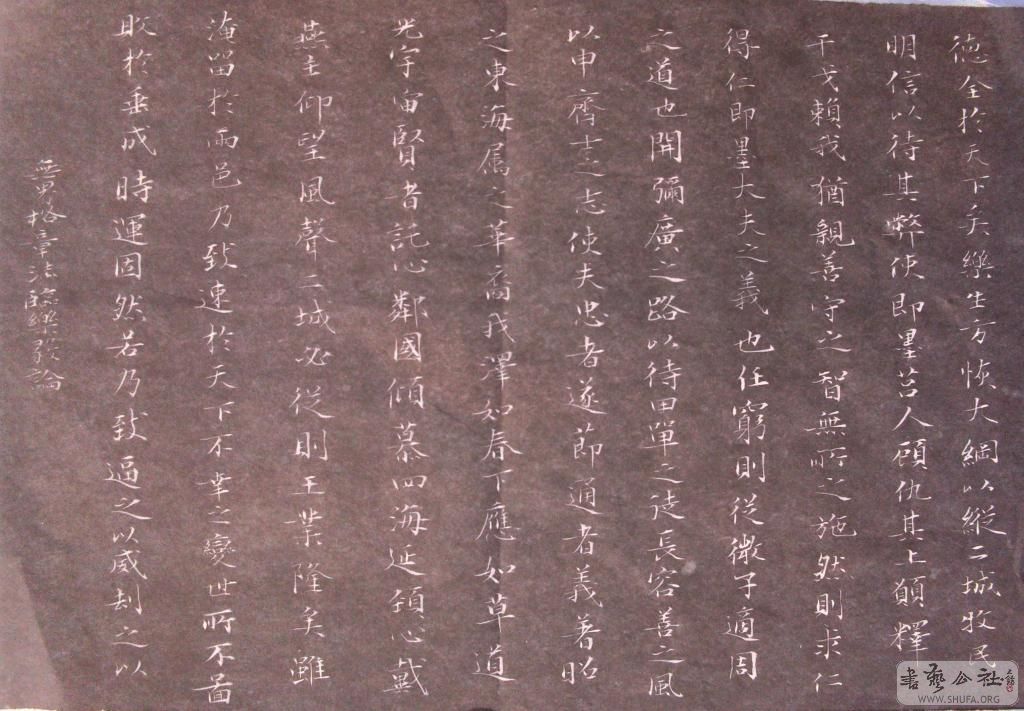 德全於天下矣樂生方恢大綱以縱二城牧民
明信以待其弊使即墨莒人顧仇其上願釋
干戈賴我猶親善守之智無所之施然則求仁
得仁即墨大夫之義也任窮則從微子適周
之道也開彌廣之路以待田單之徒長容善之風
以申齊士之志使夫忠者遂節通者義著昭
之東海屬之華裔我澤如春下應如草道
光宇宙賢者託心鄰國傾慕四海延頸心戴
燕主仰望風聲二城必從則王業隆矣雖
淹留於兩邑乃致速於天下不幸之變世所不圖
敗於垂成時運固然若乃致逼之以威劫之以
無界格章法臨樂毅論
書藝公社
WWW.SHUFA.ORG